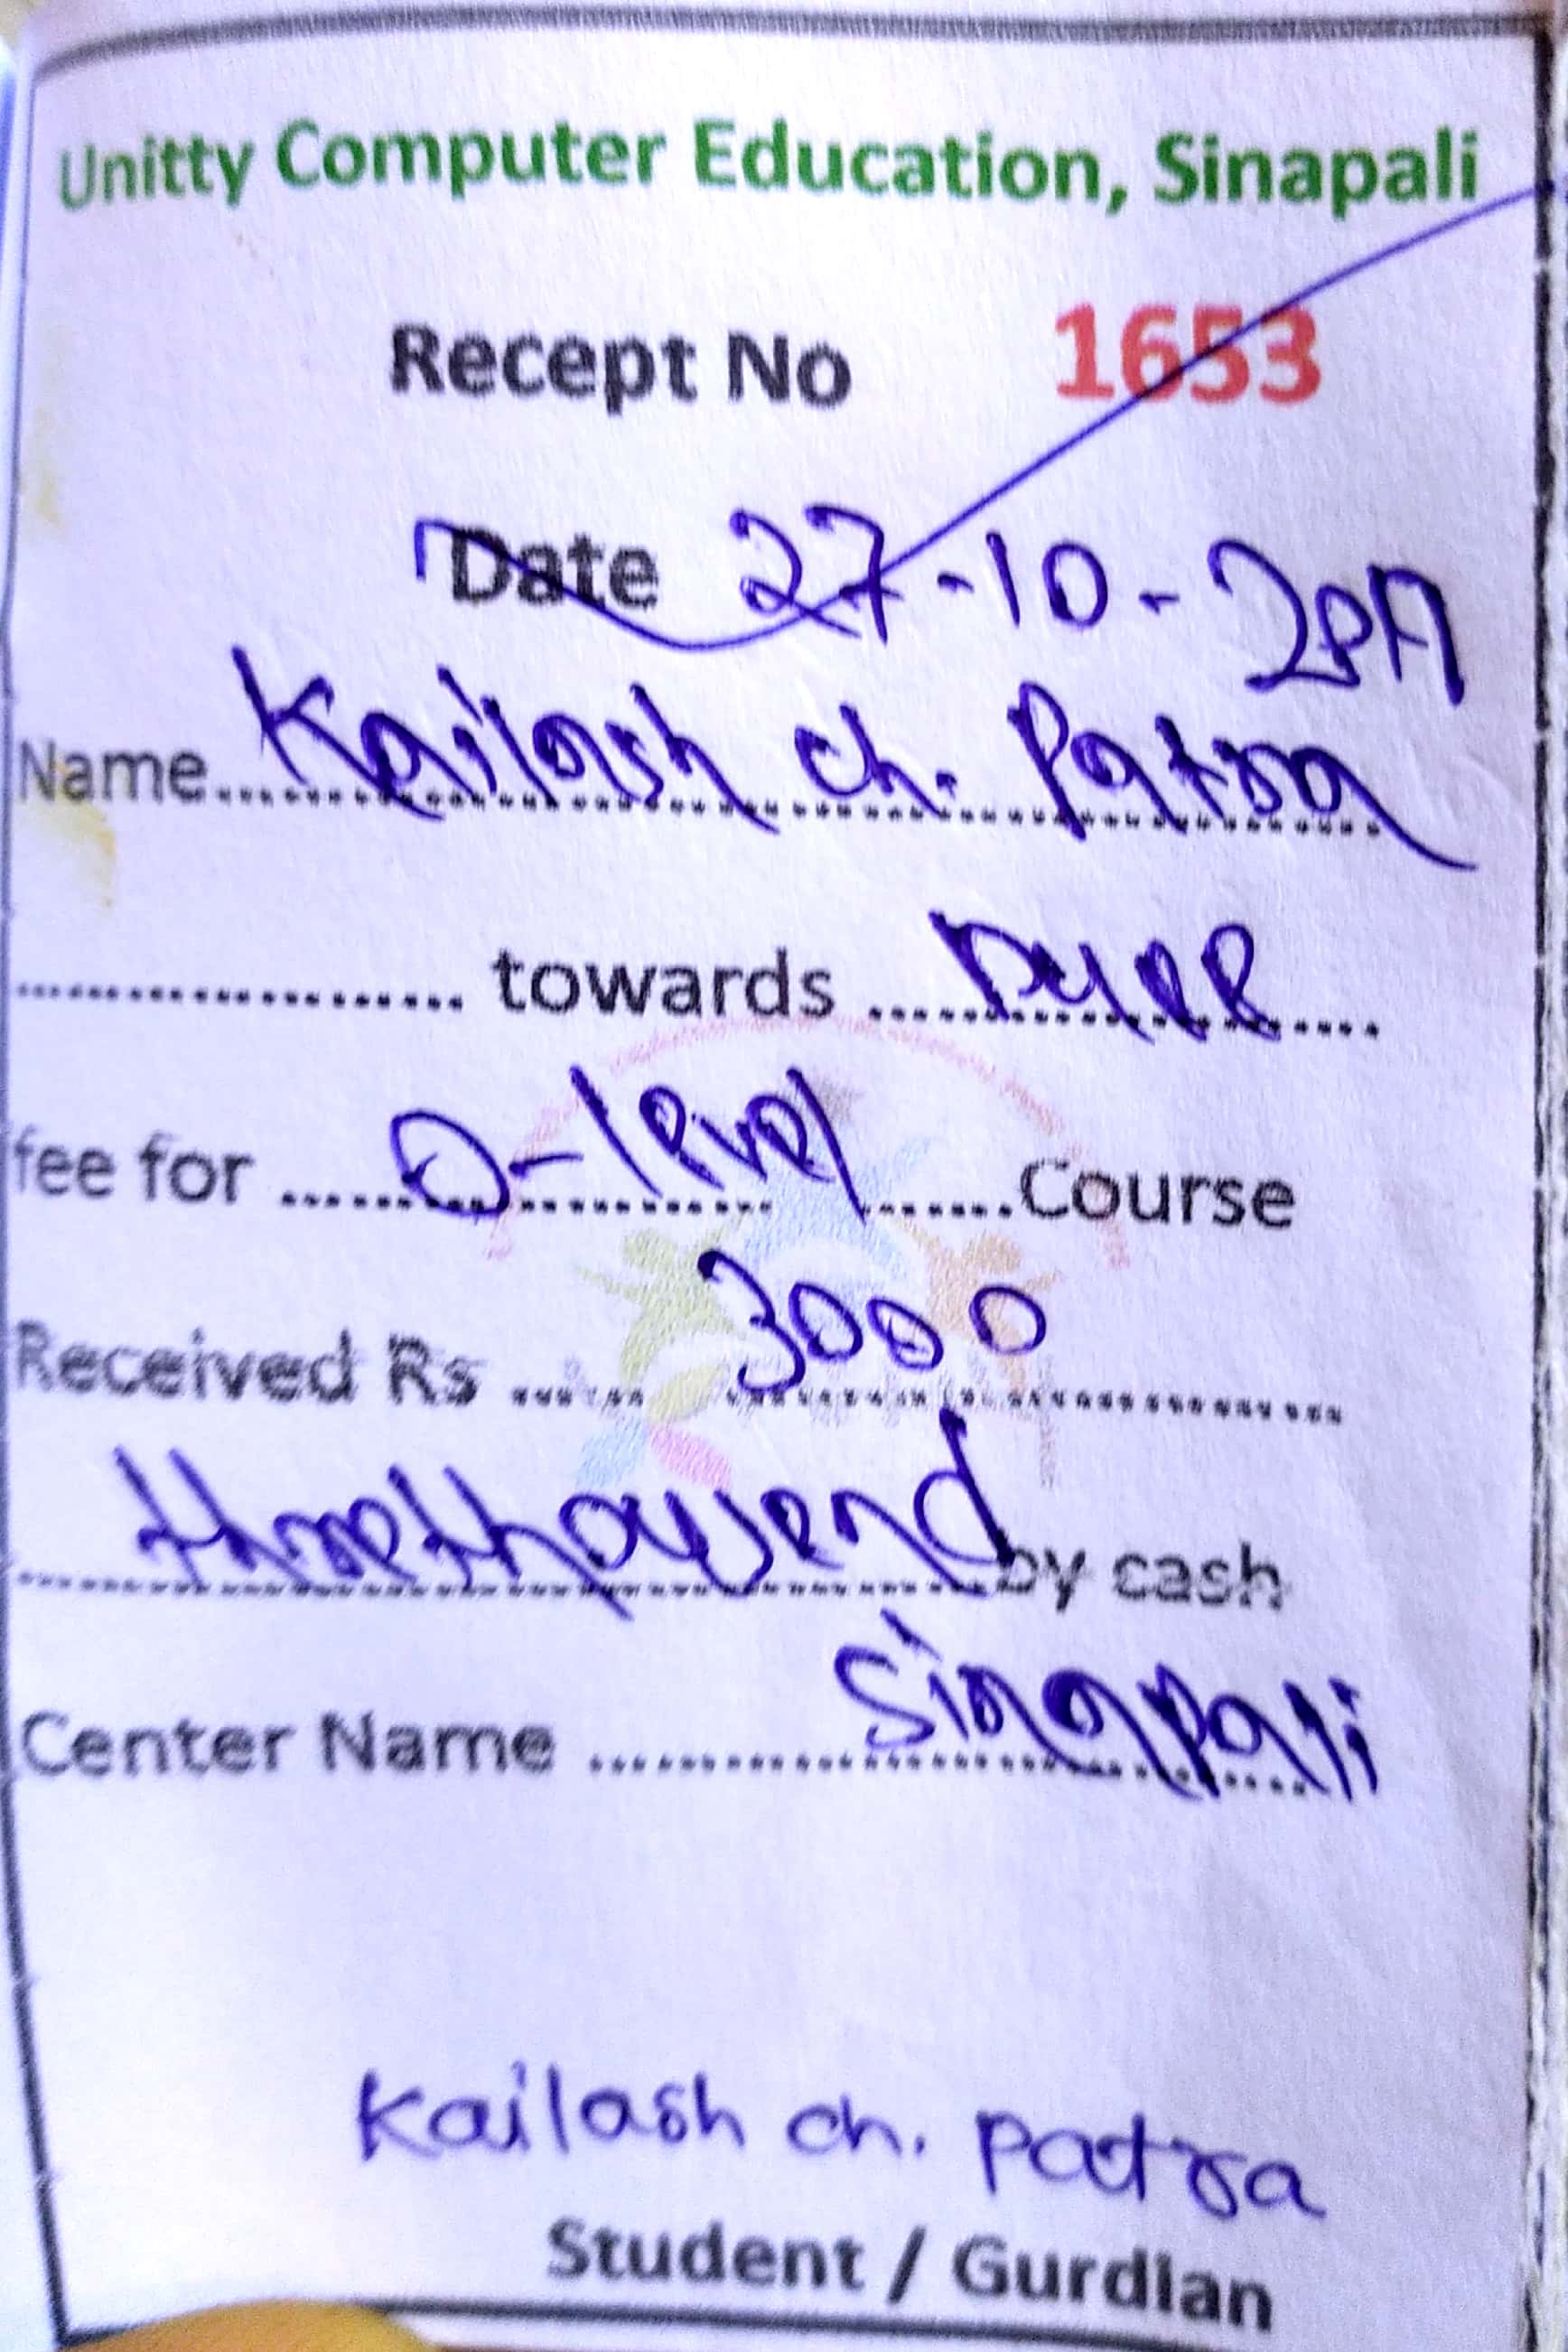 Unitty Computer Education, Sinapali
Recept No 1653
Date 27-10-2017
Name.......Kailash ch. Patra
.................... towards ..............
fee for ......O-level.......Course
Received Rs ......3000......
threethousend by cash
Center Name ............Sinapali
Kailash ch. Patra
Student / Gurdian